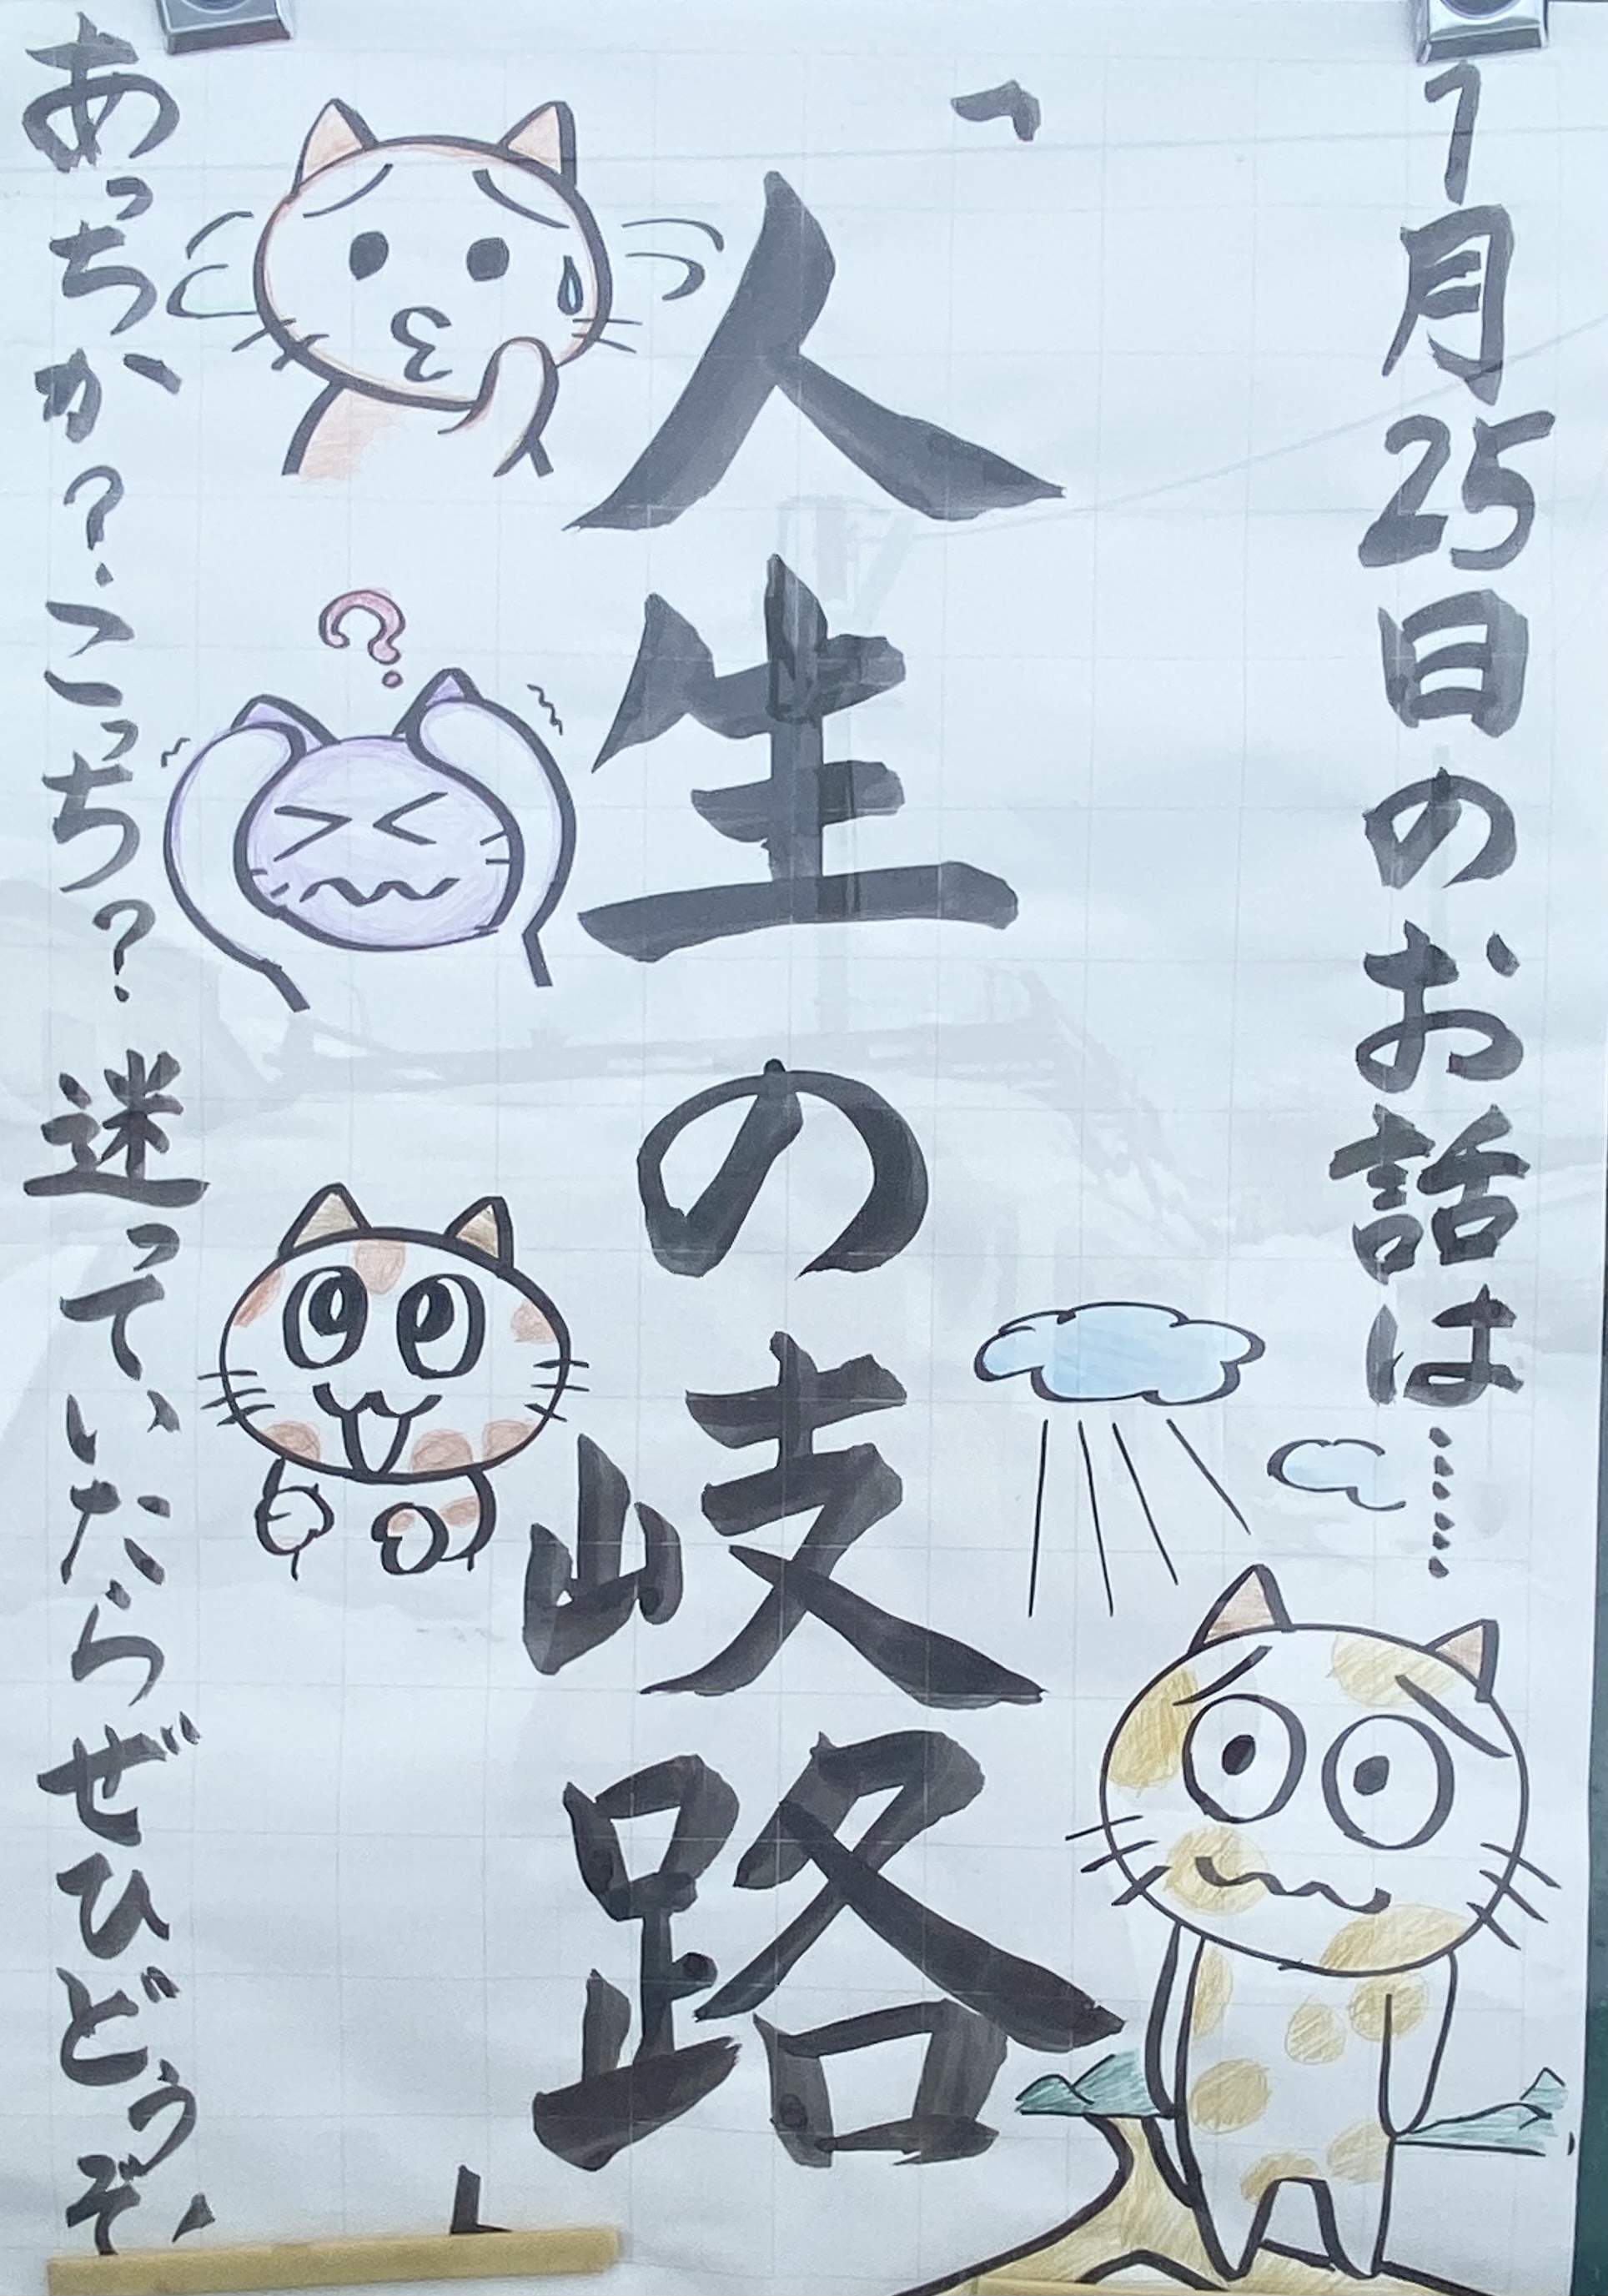 1月25日のお話は……
「人生の岐路」
あっちか？こっち？迷っていたらぜひどうぞ、
？